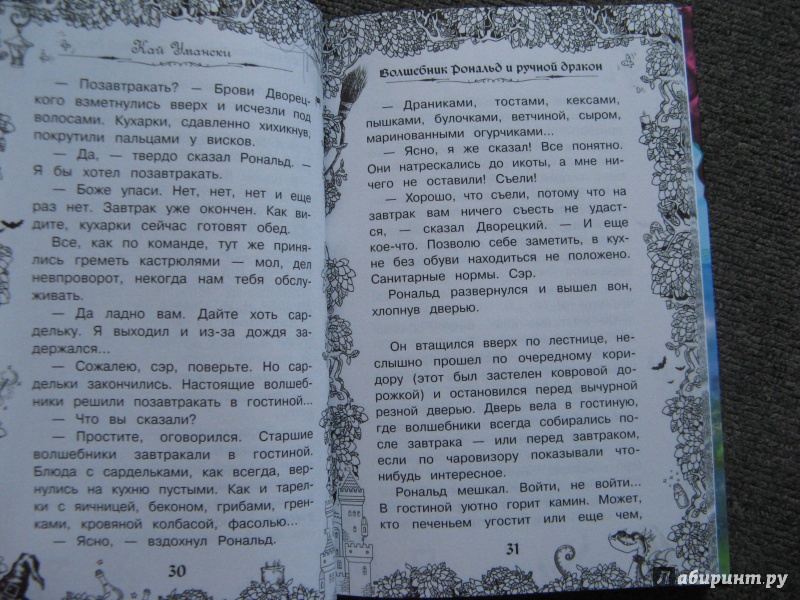 Кай Умански
— Позавтракать? — Брови Дворец-
кого взметнулись вверх и исчезли под
волосами. Кухарки, сдавленно хихикнув,
покрутили пальцами у висков.
— Да, — твердо сказал Рональд. —
Я бы хотел позавтракать.
— Боже упаси. Нет, нет, нет и еще
раз нет. Завтрак уже окончен. Как ви-
дите, кухарки сейчас готовят обед.
Все, как по команде, тут же приня-
лись греметь кастрюлями — мол, дел
невпроворот, некогда нам тебя обслу-
живать.
— Да ладно вам. Дайте хоть сар-
дельку. Я выходил и из-за дождя за-
держался...
— Сожалею, сэр, поверьте. Но сар-
дельки закончились. Настоящие волшеб-
ники решили позавтракать в гостиной...
— Что вы сказали?
— Простите, оговорился. Старшие
волшебники завтракали в гостиной.
Блюда с сардельками, как всегда, вер-
нулись на кухню пустыми. Как и тарел-
ки с яичницей, беконом, грибами, грен-
ками, кровяной колбасой, фасолью...
— Ясно, — вздохнул Рональд.
30
Волшебник Рональд и ручной дракон
— Драниками, тостами, кексами,
пышками, булочками, ветчиной, сыром,
маринованными огурчиками...
— Ясно, я же сказал! Все понятно.
Они натрескались до икоты, а мне ни-
чего не оставили! Съели!
— Хорошо, что съели, потому что на
завтрак вам ничего съесть не удаст-
ся, — сказал Дворецкий. — И еще
кое-что. Позволю себе заметить, в кух-
не без обуви находиться не положено.
Санитарные нормы. Сэр.
Рональд развернулся и вышел вон,
хлопнув дверью.
Он втащился вверх по лестнице, не-
слышно прошел по очередному кори-
дору (этот был застелен ковровой до-
рожкой) и остановился перед вычурной
резной дверью. Дверь вела в гостиную,
где волшебники всегда собирались по-
сле завтрака — или перед завтраком,
если по чаровизору показывали что-
нибудь интересное.
Рональд мешкал. Войти, не войти...
В гостиной уютно горит камин. Может,
кто печеньем угостит или еще чем,
31
Лабиринт.ру